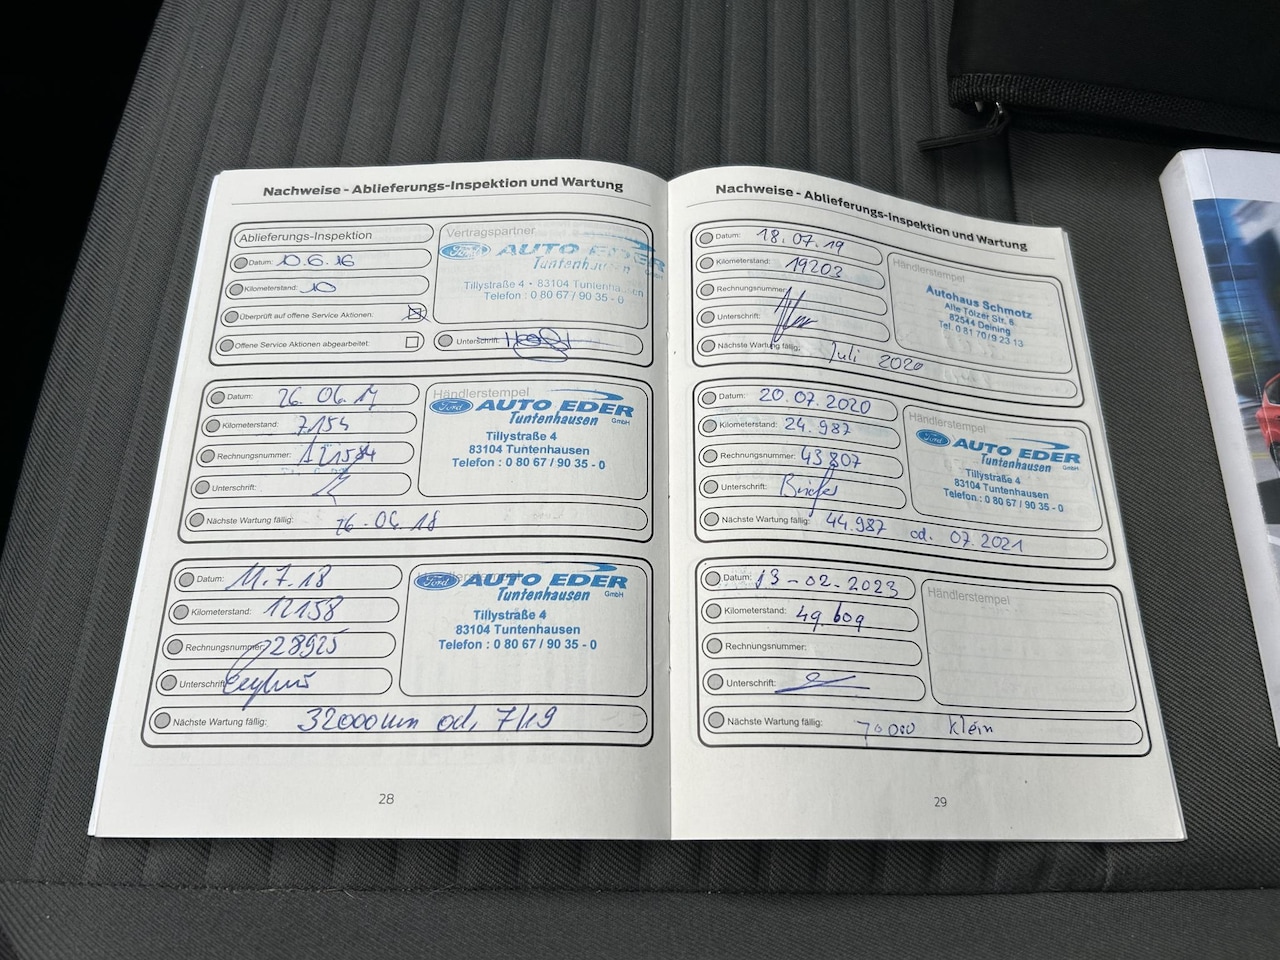 Nachweise - Ablieferungs-Inspektion und Wartung
Ablieferungs-Inspektion
Datum: 10.6.16
Kilometerstand: 10
Überprüft auf offene Service Aktionen:
Offene Service Aktionen abgearbeitet:
Vertragspartner
Ford AUTO EDER
Tuntenhausen GmbH
Tillystraße 4 • 83104 Tuntenhausen
Telefon : 0 80 67 / 90 35 - 0
Unterschrift:
Datum: 26.06.17
Kilometerstand: 7154
Rechnungsnummer: 121584
Unterschrift:
Händlerstempel
Ford AUTO EDER
Tuntenhausen GmbH
Tillystraße 4
83104 Tuntenhausen
Telefon : 0 80 67 / 90 35 - 0
Nächste Wartung fällig: 26.06.18
Datum: 11.7.18
Kilometerstand: 12158
Rechnungsnummer: 28925
Unterschrift:
Händlerstempel
Ford AUTO EDER
Tuntenhausen GmbH
Tillystraße 4
83104 Tuntenhausen
Telefon : 0 80 67 / 90 35 - 0
Nächste Wartung fällig: 32000 km od. 7/19
28
Nachweise - Ablieferungs-Inspektion und Wartung
Datum: 18.07.19
Kilometerstand: 19203
Rechnungsnummer:
Unterschrift:
Händlerstempel
Autohaus Schmotz
Alte Tölzer Str. 6
82544 Deining
Tel. 0 81 70 / 9 23 13
Nächste Wartung fällig: Juli 2020
Datum: 20.07.2020
Kilometerstand: 24.987
Rechnungsnummer: 43807
Unterschrift:
Händlerstempel
Ford AUTO EDER
Tuntenhausen GmbH
Tillystraße 4
83104 Tuntenhausen
Telefon : 0 80 67 / 90 35 - 0
Nächste Wartung fällig: 44.987 od. 07.2021
Datum: 13-02.2023
Kilometerstand: 49.609
Rechnungsnummer:
Unterschrift:
Händlerstempel
Nächste Wartung fällig: 70000 Klein
29